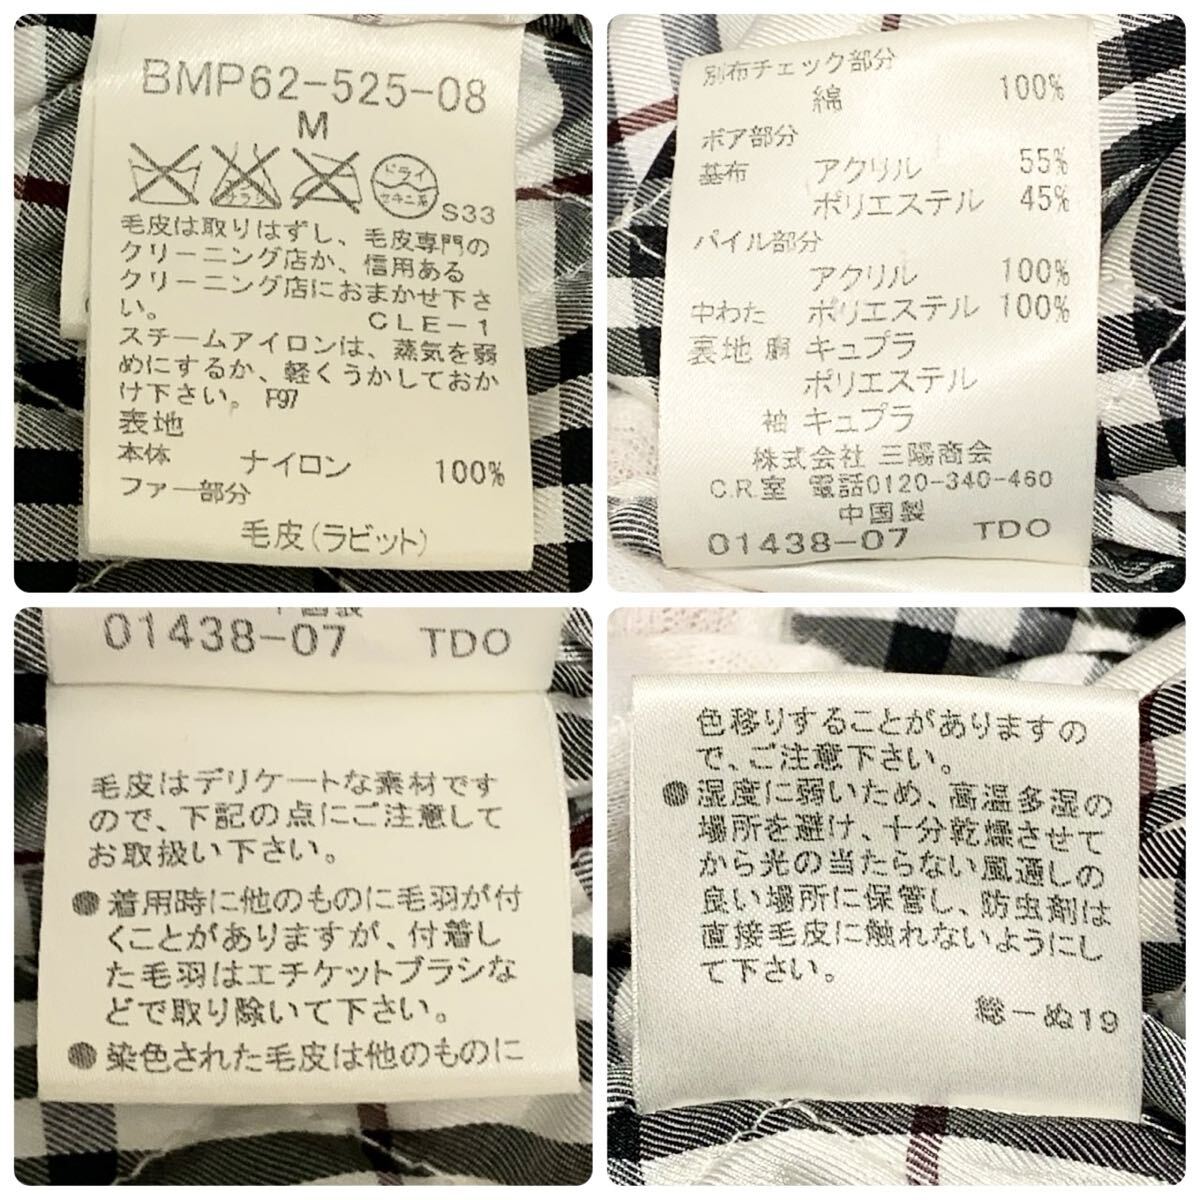 BMP62-525-08
M
エンソサラシ
ドライ
セキユ系
S33
毛皮は取りはずし、毛皮専門の
クリーニング店か、信用ある
クリーニング店におまかせ下さ
い。 CLE-1
スチームアイロンは、蒸気を弱
めにするか、軽くうかしておか
け下さい。 F97
表地
本体 ナイロン 100%
ファー部分
毛皮(ラビット)
別布チェック部分
綿 100%
ボア部分
基布 アクリル 55%
ポリエステル 45%
パイル部分
アクリル 100%
中わた ポリエステル 100%
裏地 胴 キュプラ
ポリエステル
袖 キュプラ
株式会社 三陽商会
C.R.室 電話0120-340-460
中国製
01438-07 TDO
中国製
01438-07 TDO
毛皮はデリケートな素材です
ので、下記の点にご注意して
お取扱い下さい。
●着用時に他のものに毛羽が付
くことがありますが、付着し
た毛羽はエチケットブラシな
どで取り除いて下さい。
●染色された毛皮は他のものに
色移りすることがありますの
で、ご注意下さい。
●湿度に弱いため、高温多湿の
場所を避け、十分乾燥させて
から光の当たらない風通しの
良い場所に保管し、防虫剤は
直接毛皮に触れないようにし
て下さい。
総-ぬ19